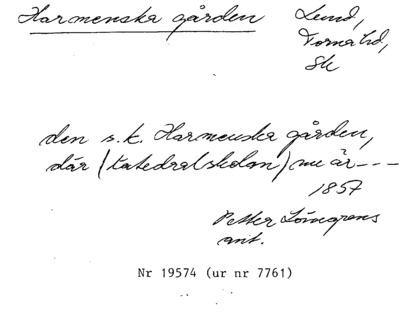 Harmenska gården
Lund,
Torna hd,
Sk
den s.k. Harmenska gården,
där (katedralskolan) nu är - - -
1857
Petter Löwegrens
ant.
Nr 19574 (ur nr 7761)